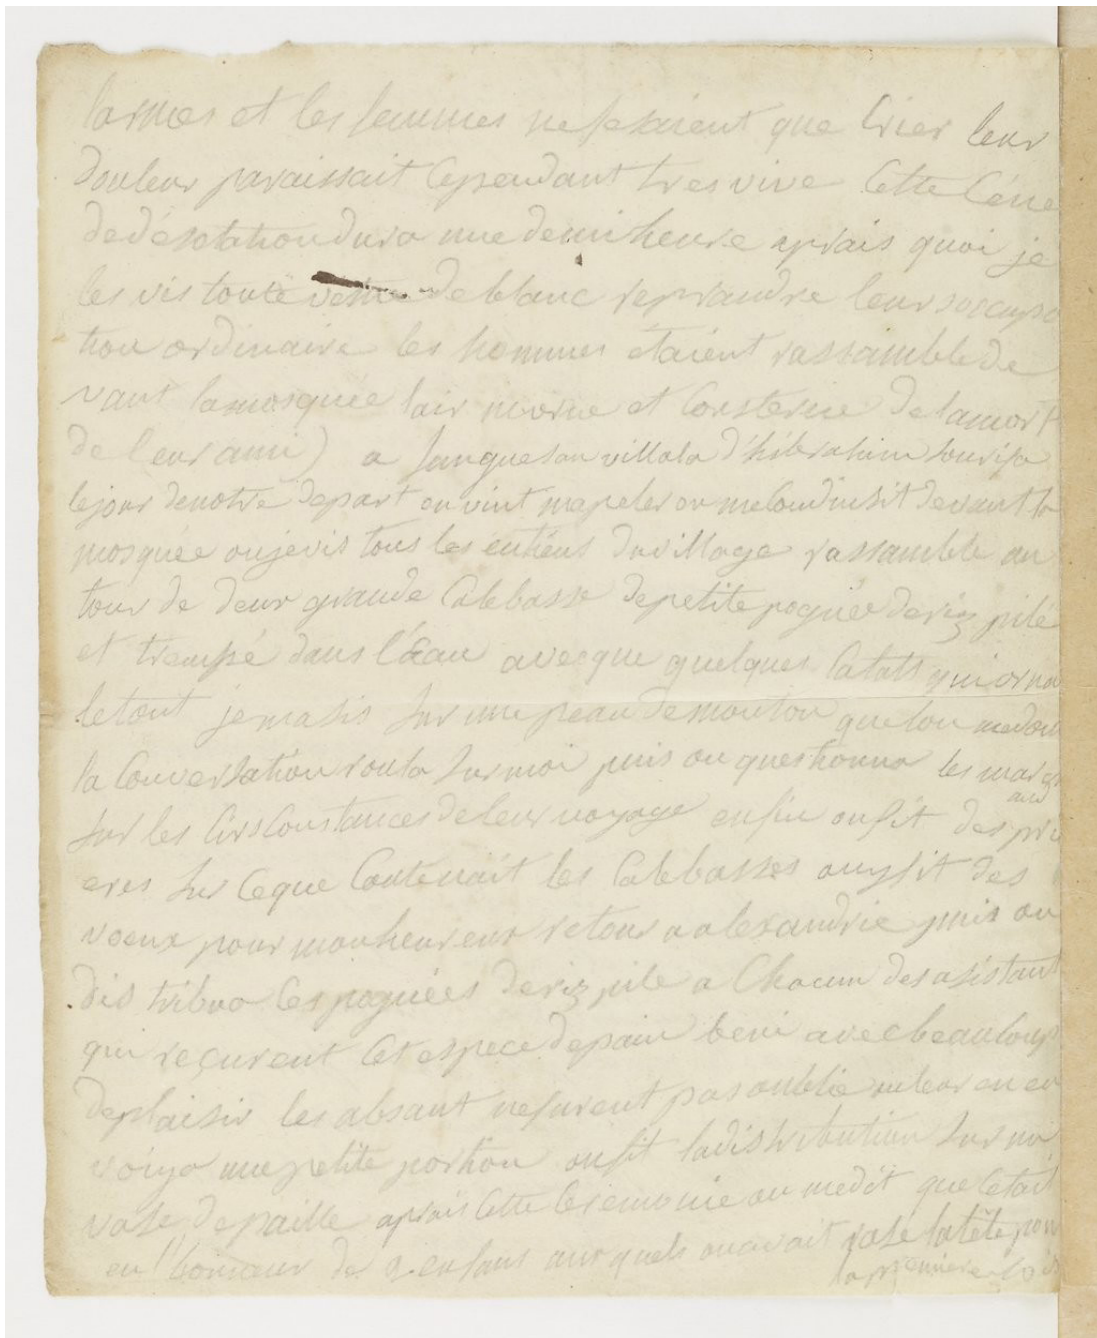 larmes et les femmes nefesaient que Crier leur
douleur paraissait Cependant tres vive Cette Céne
dedésolation dura une demi heure aprais quoi je
les vis toute vetue de blanc reprandre leurs occupa
tion ordinaire les hommes etaient rassamblé de
vant lamosquée lair morne et Consterné delamort
de leur ami) a
lejour denotre depart on vint mapeler on meConduisit devant la
mosquée oujevis tous les entiens duvillage rassamblé au
tour de deux grande Calebasse depetite pognée deriz pilé
et trempé dans l'éau avecque quelques qui orna
letout jemasis sur une peau demouton quelon medon
la Conversation roula surmoi puis on questionna les march
ans
sur les Cirsconstances deleur voyage enfin onfit des pri
eres sur Ceque Contenait les Calebasses onyfit des
voeux pour monheureux retour a alexandrie puis on
distribua les pognées deriz pile a Chacun desasistant
qui reçurent Cet espece depain beni avec beaucoup
deplaisir les absant nefurent pas oublié onleur en en
voiya une petite portion onfit ladistribution sur un
vase depaille aprais Cette Ceremonie on medit que Cetait
en l'honneur de 2 enfans auxquels onavait rasé latête pour
lapremiere fois